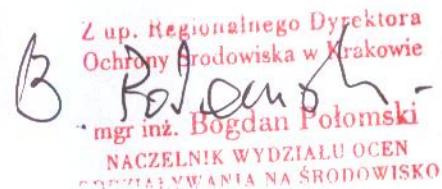 Z up. Regionalnego Dyrektora
Ochrony Środowiska w Krakowie
mgr inż. Bogdan Połomski
NACZELNIK WYDZIAŁU OCEN
ODDZIAŁYWANIA NA ŚRODOWISKO